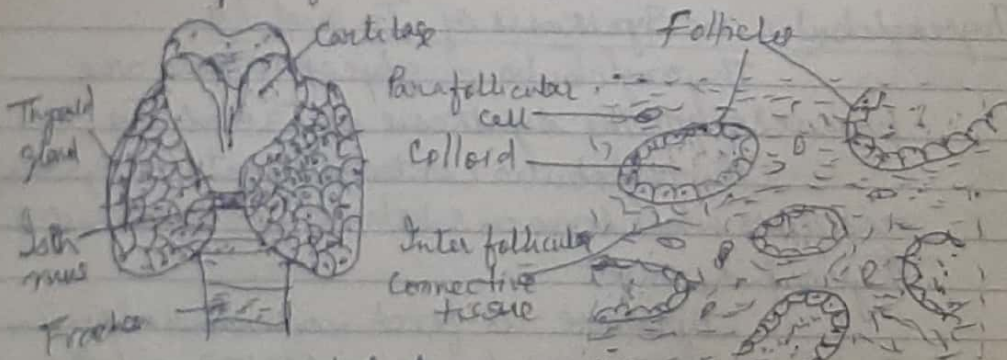 Cartilage
Thyroid
gland
Isth
mus
Trachea
Follicles
Parafollicular
cell
Colloid
Inter follicular
connective
tissue